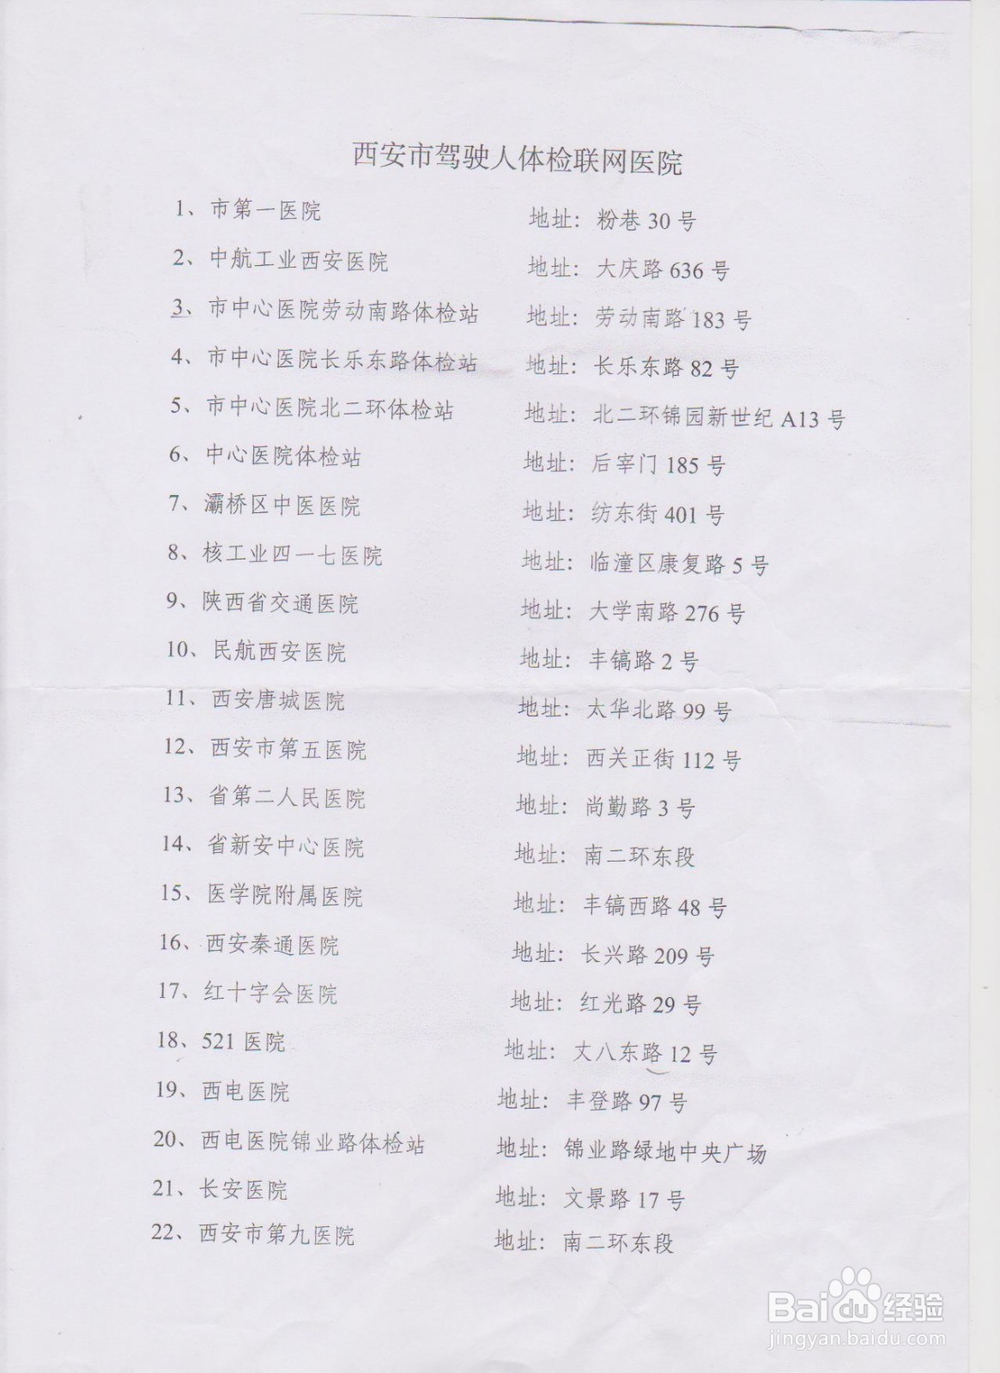 西安市驾驶人体检联网医院
1、市第一医院 地址：粉巷 30 号
2、中航工业西安医院 地址：大庆路 636 号
3、市中心医院劳动南路体检站 地址：劳动南路 183 号
4、市中心医院长乐东路体检站 地址：长乐东路 82 号
5、市中心医院北二环体检站 地址：北二环锦园新世纪 A13 号
6、中心医院体检站 地址：后宰门 185 号
7、灞桥区中医医院 地址：纺东街 401 号
8、核工业四一七医院 地址：临潼区康复路 5 号
9、陕西省交通医院 地址：大学南路 276 号
10、民航西安医院 地址：丰镐路 2 号
11、西安唐城医院 地址：太华北路 99 号
12、西安市第五医院 地址：西关正街 112 号
13、省第二人民医院 地址：尚勤路 3 号
14、省新安中心医院 地址：南二环东段
15、医学院附属医院 地址：丰镐西路 48 号
16、西安秦通医院 地址：长兴路 209 号
17、红十字会医院 地址：红光路 29 号
18、521 医院 地址：丈八东路 12 号
19、西电医院 地址：丰登路 97 号
20、西电医院锦业路体检站 地址：锦业路绿地中央广场
21、长安医院 地址：文景路 17 号
22、西安市第九医院 地址：南二环东段
Baidu经验
jingyan.baidu.com